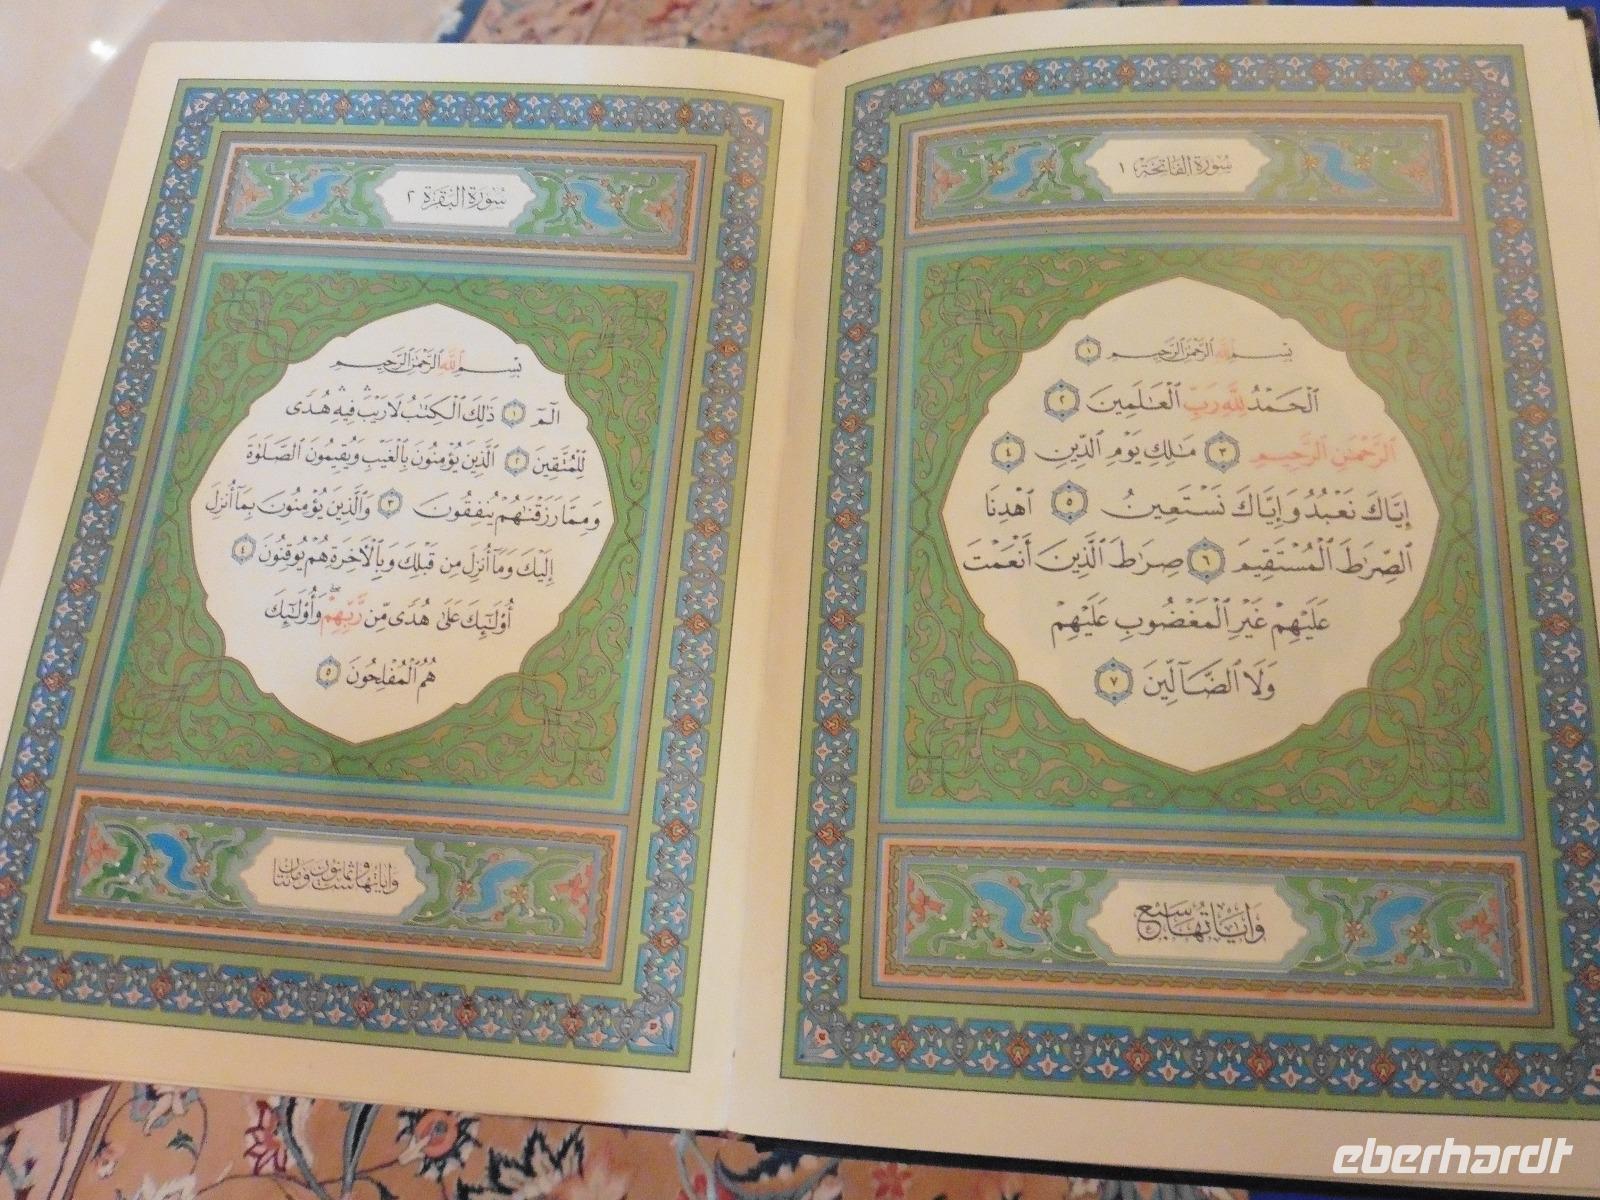 سُورَةُ الفَاتِحَةِ ١
بِسْمِ ٱللَّهِ ٱلرَّحْمَٰنِ ٱلرَّحِيمِ ١
ٱلْحَمْدُ لِلَّهِ رَبِّ ٱلْعَٰلَمِينَ ٢
ٱلرَّحْمَٰنِ ٱلرَّحِيمِ ٣ مَٰلِكِ يَوْمِ ٱلدِّينِ ٤
إِيَّاكَ نَعْبُدُ وَإِيَّاكَ نَسْتَعِينُ ٥ ٱهْدِنَا
ٱلصِّرَٰطَ ٱلْمُسْتَقِيمَ ٦ صِرَٰطَ ٱلَّذِينَ أَنْعَمْتَ
عَلَيْهِمْ غَيْرِ ٱلْمَغْضُوبِ عَلَيْهِمْ
وَلَا ٱلضَّآلِّينَ ٧
وَآيَاتُهَا سَبْعٌ
سُورَةُ البَقَرَةِ ٢
بِسْمِ ٱللَّهِ ٱلرَّحْمَٰنِ ٱلرَّحِيمِ
الٓمٓ ١ ذَٰلِكَ ٱلْكِتَٰبُ لَا رَيْبَۛ فِيهِۛ هُدًى
لِّلْمُتَّقِينَ ٢ ٱلَّذِينَ يُؤْمِنُونَ بِٱلْغَيْبِ وَيُقِيمُونَ ٱلصَّلَوٰةَ
وَمِمَّا رَزَقْنَٰهُمْ يُنفِقُونَ ٣ وَٱلَّذِينَ يُؤْمِنُونَ بِمَآ أُنزِلَ
إِلَيْكَ وَمَآ أُنزِلَ مِن قَبْلِكَ وَبِٱلْأَخِرَةِ هُمْ يُوقِنُونَ ٤
أُو۟لَٰٓئِكَ عَلَىٰ هُدًى مِّن رَّبِّهِمْۖ وَأُو۟لَٰٓئِكَ
هُمُ ٱلْمُفْلِحُونَ ٥
وَآيَاتُهَا سِتٌّ وَثَمَانُونَ وَمِائَتَانِ
eberhardt